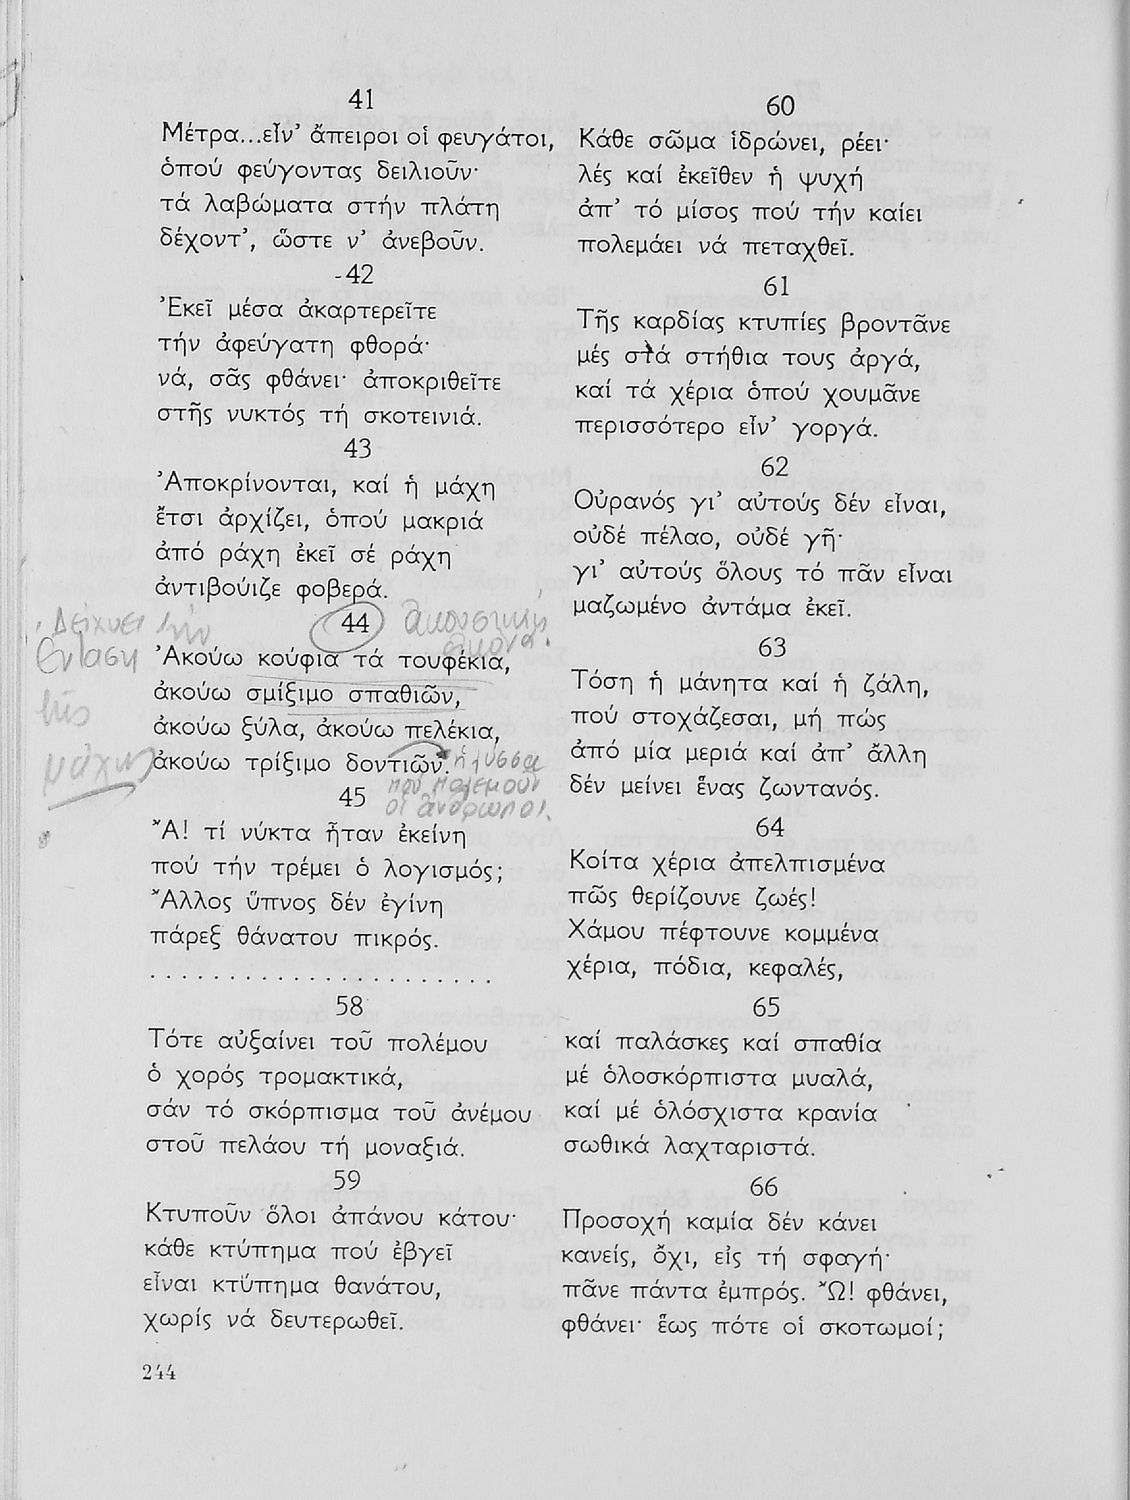 41
Μέτρα...εἶν' ἄπειροι οἱ φευγάτοι,
ὁπού φεύγοντας δειλιοῦν·
τά λαβώματα στήν πλάτη
δέχοντ', ὥστε ν' ἀνεβοῦν.
-42
Ἐκεῖ μέσα ἀκαρτερεῖτε
τήν ἀφεύγατη φθορά·
νά, σᾶς φθάνει· ἀποκριθεῖτε
στῆς νυκτός τή σκοτεινιά.
43
Ἀποκρίνονται, καί ἡ μάχη
ἔτσι ἀρχίζει, ὁπού μακριά
ἀπό ράχη ἐκεῖ σέ ράχη
ἀντιβούιζε φοβερά.
44
ἀκουστική
εἰκόνα.
Δείχνει τήν
ἔνταση
τῆς
μάχης
Ἀκούω κούφια τά τουφέκια,
ἀκούω σμίξιμο σπαθιῶν,
ἀκούω ξύλα, ἀκούω πελέκια,
ἀκούω τρίξιμο δοντιῶν.
ἡ λύσσα
πού πολεμοῦν
οἱ ἄνθρωποι.
45
Ἄ! τί νύκτα ἦταν ἐκείνη
πού τήν τρέμει ὁ λογισμός;
Ἄλλος ὕπνος δέν ἐγίνη
πάρεξ θάνατου πικρός.
. . . . . . . . . . . . . . . . . . . . . .
58
Τότε αὐξαίνει τοῦ πολέμου
ὁ χορός τρομακτικά,
σάν τό σκόρπισμα τοῦ ἀνέμου
στοῦ πελάου τή μοναξιά.
59
Κτυποῦν ὅλοι ἀπάνου κάτου·
κάθε κτύπημα πού ἐβγεῖ
εἶναι κτύπημα θανάτου,
χωρίς νά δευτερωθεῖ.
60
Κάθε σῶμα ἱδρώνει, ρέει·
λές καί ἐκεῖθεν ἡ ψυχή
ἀπ' τό μίσος πού τήν καίει
πολεμάει νά πεταχθεῖ.
61
Τῆς καρδίας κτυπίες βροντᾶνε
μές στά στήθια τους ἀργά,
καί τά χέρια ὁπού χουμᾶνε
περισσότερο εἶν' γοργά.
62
Οὐρανός γι' αὐτούς δέν εἶναι,
οὐδέ πέλαο, οὐδέ γῆ·
γι' αὐτούς ὅλους τό πᾶν εἶναι
μαζωμένο ἀντάμα ἐκεῖ.
63
Τόση ἡ μάνητα καί ἡ ζάλη,
πού στοχάζεσαι, μή πώς
ἀπό μία μεριά καί ἀπ' ἄλλη
δέν μείνει ἕνας ζωντανός.
64
Κοίτα χέρια ἀπελπισμένα
πῶς θερίζουνε ζωές!
Χάμου πέφτουνε κομμένα
χέρια, πόδια, κεφαλές,
65
καί παλάσκες καί σπαθία
μέ ὁλοσκόρπιστα μυαλά,
καί μέ ὁλόσχιστα κρανία
σωθικά λαχταριστά.
66
Προσοχή καμία δέν κάνει
κανείς, ὄχι, εἰς τή σφαγή·
πᾶνε πάντα ἐμπρός. Ὤ! φθάνει,
φθάνει· ἕως πότε οἱ σκοτωμοί;
244